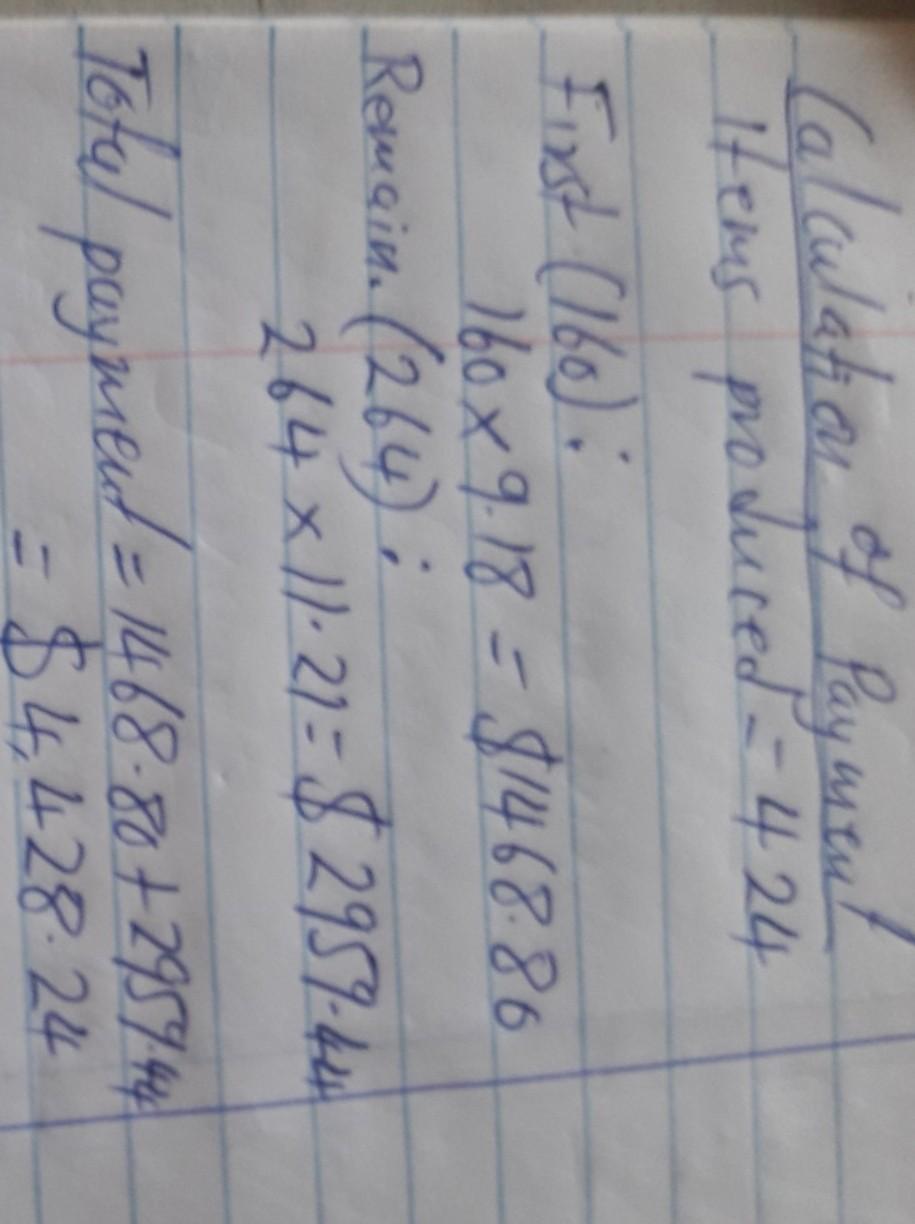 Calculation of Payment
Items produced = 424
First (160):
160 × 9.18 = $1468.80
Remain. (264):
264 × 11.21 = $2959.44
Total payment = 1468.80 + 2959.44
= $4,428.24